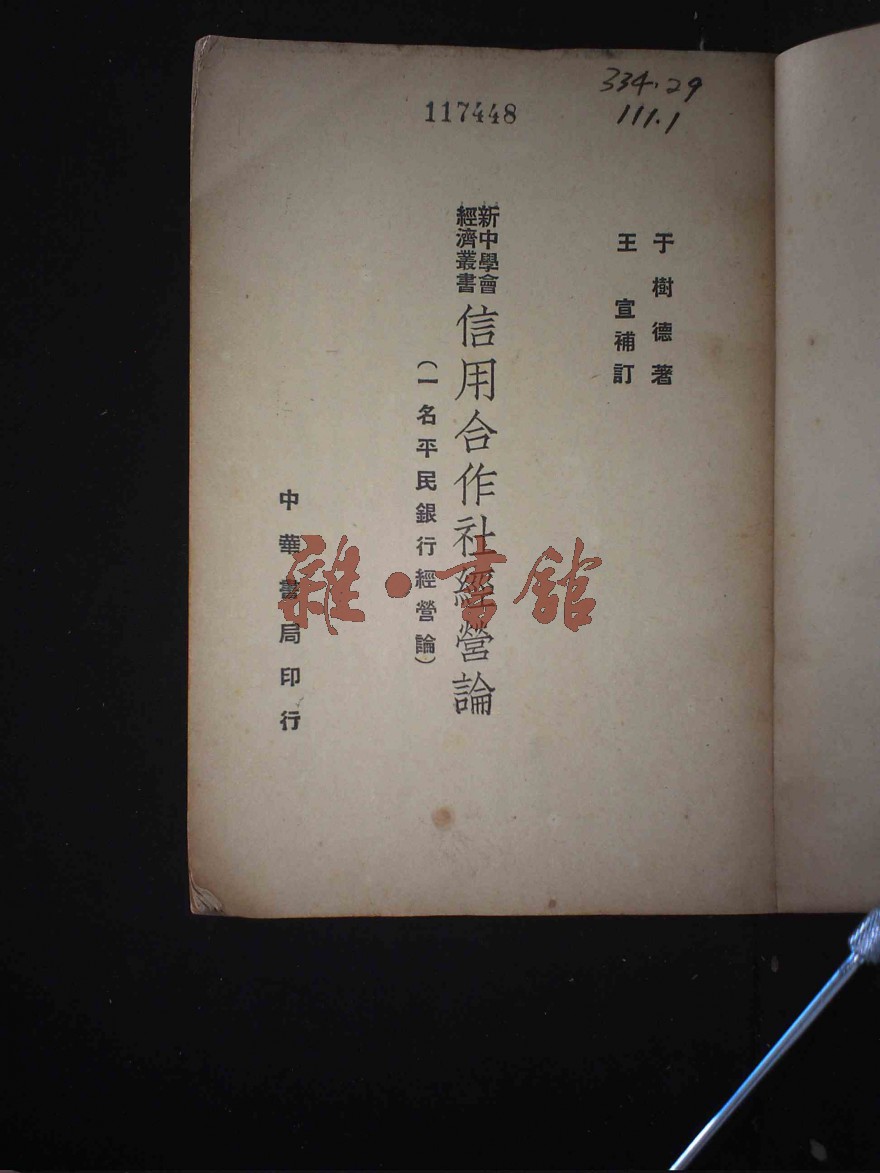 334.29
111.1
117448
于樹德著
王宣補訂
新中學會
經濟叢書
信用合作社經營論
(一名平民銀行經營論)
中華書局印行
雜·書館